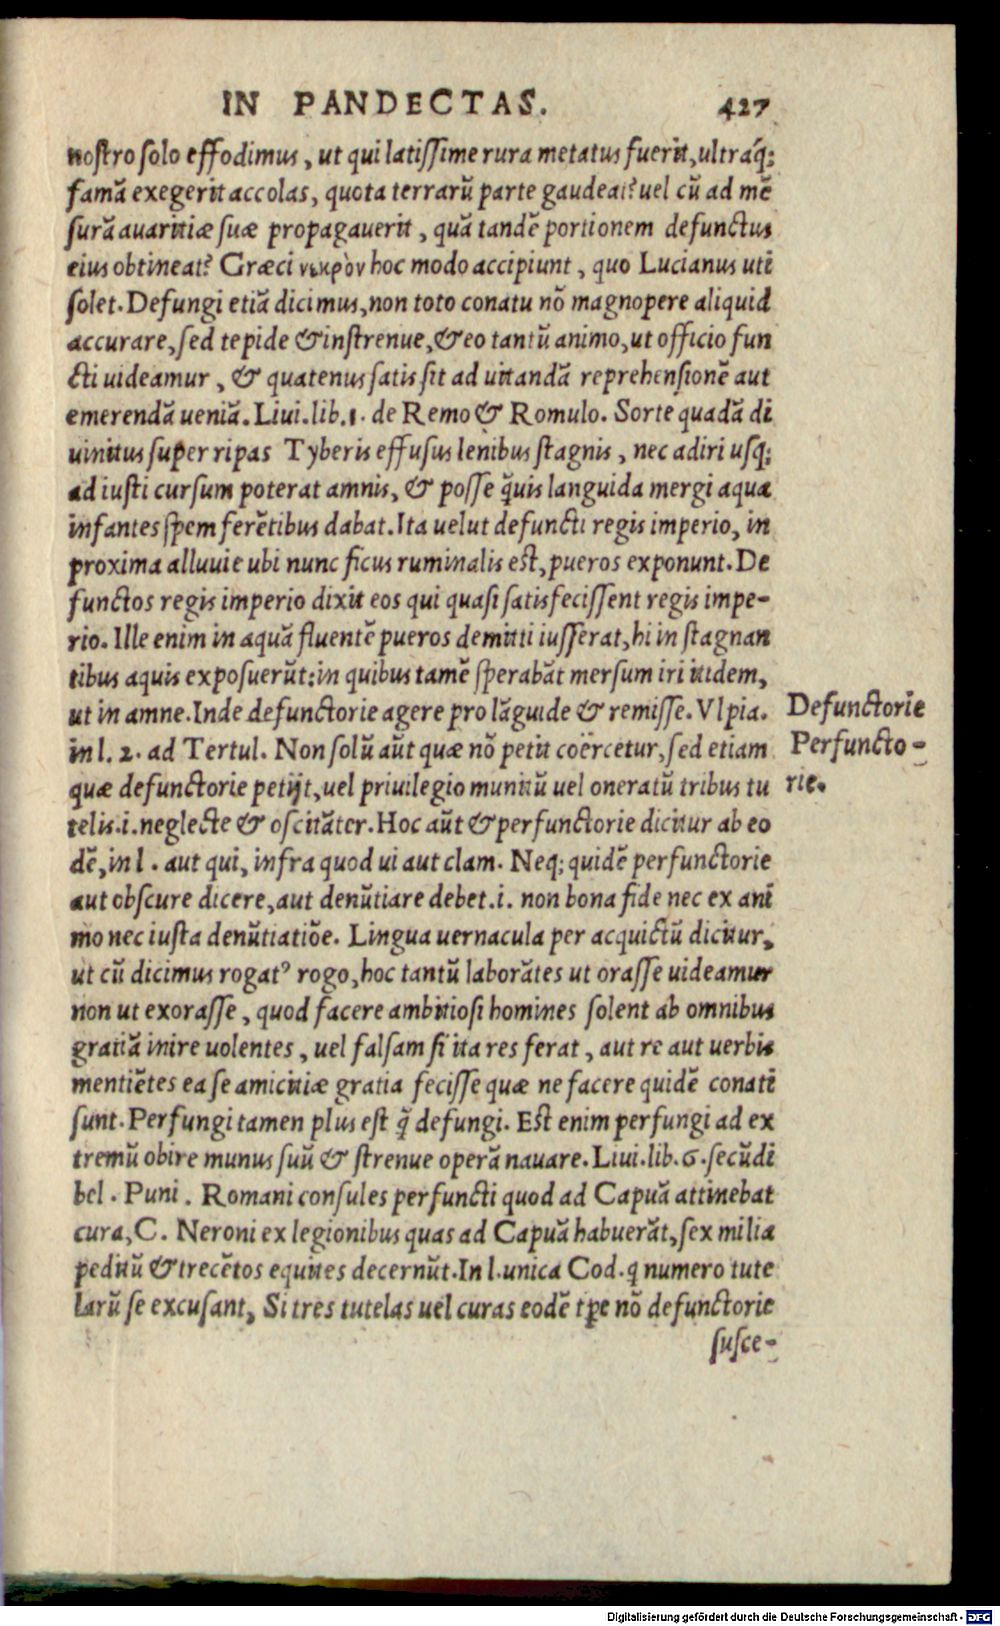 IN PANDECTAS. 427
nostro solo effodimus, ut qui latissime rura metatus fuerit, ultráq;
famā exegerit accolas, quota terrarū parte gaudeat? uel cū ad mē
surā auaritiæ suæ propagauerit, quā tandē portionem defunctus
eius obtineat? Græci νεκρὸν hoc modo accipiunt, quo Lucianus uti
solet. Defungi etiā dicimus, non toto conatu nō magnopere aliquid
accurare, sed tepide & instrenue, & eo tantū animo, ut officio fun
cti uideamur, & quatenus satis sit ad uitandā reprehensionē aut
emerendā ueniā. Liui. lib. 1. de Remo & Romulo. Sorte quadā di
uinitus super ripas Tyberis effusus lenibus stagnis, nec adiri usq;
ad iusti cursum poterat amnis, & posse q̃uis languida mergi aqua
infantes spem ferētibus dabat. Ita uelut defuncti regis imperio, in
proxima alluuie ubi nunc ficus ruminalis est, pueros exponunt. De
functos regis imperio dixit eos qui quasi satisfecissent regis impe-
rio. Ille enim in aquā fluentē pueros demitti iusserat, hi in stagnan
tibus aquis exposuerūt: in quibus tamē sperabāt mersum iri itidem,
ut in amne. Inde defunctorie agere pro lāguide & remisse. Vlpia.
Defunctorie
in l. 2. ad Tertul. Non solū aūt quæ nō petit coërcetur, sed etiam
Perfuncto-
quæ defunctorie petijt, uel priuilegio munitū uel oneratū tribus tu
rie.
telis. i. neglecte & oscitāter. Hoc aūt & perfunctorie dicitur ab eo
dē, in l. aut qui, infra quod ui aut clam. Neq; quidē perfunctorie
aut obscure dicere, aut denūtiare debet. i. non bona fide nec ex ani
mo nec iusta denūtiatiōe. Lingua uernacula per acquictū dicitur,
ut cū dicimus rogatꝰ rogo, hoc tantū laborātes ut orasse uideamur
non ut exorasse, quod facere ambitiosi homines solent ab omnibus
gratiā inire uolentes, uel falsam si ita res ferat, aut re aut uerbis
mentiētes ea se amicitiæ gratia fecisse quæ ne facere quidē conati
sunt. Perfungi tamen plus est q̃ defungi. Est enim perfungi ad ex
tremū obire munus suū & strenue operā nauare. Liui. lib. 6. secūdi
bel. Puni. Romani consules perfuncti quod ad Capuā attinebat
cura, C. Neroni ex legionibus quas ad Capuā habuerāt, sex milia
peditū & trecētos equites decernūt. In l. unica Cod. q numero tute
larū se excusant, Si tres tutelas uel curas eodē tꝑe nō defunctorie
susce-
Digitalisierung gefördert durch die Deutsche Forschungsgemeinschaft - DFG